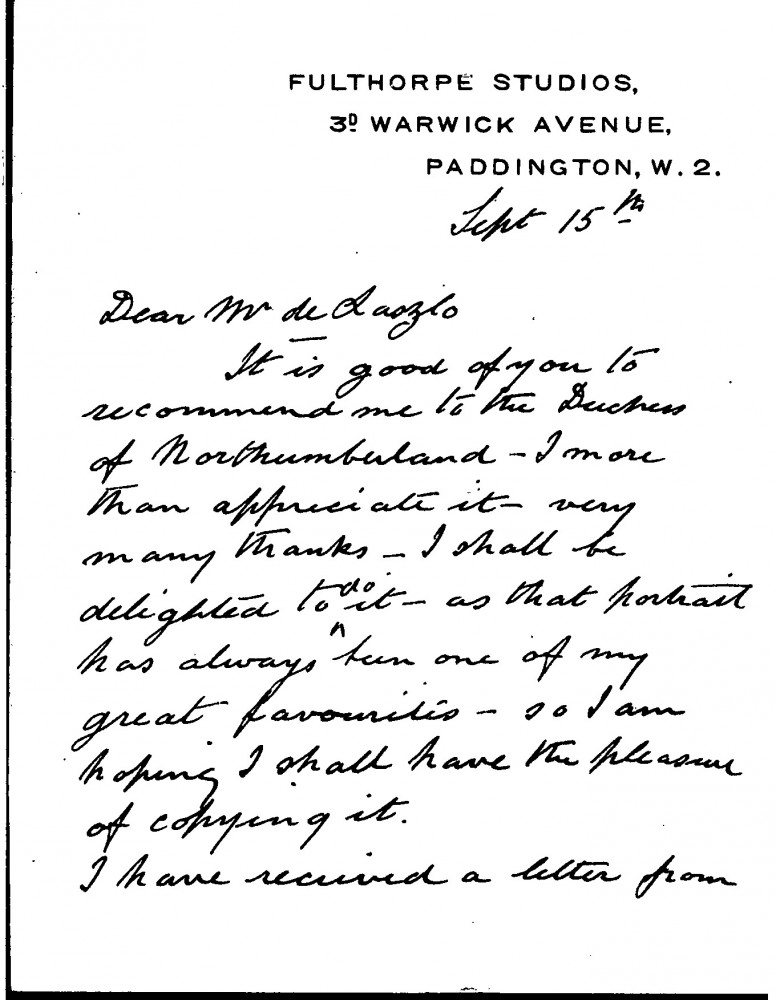 FULTHORPE STUDIOS,
3D WARWICK AVENUE,
PADDINGTON, W. 2.
Sept 15th
Dear Mr de Laszlo
It is good of you to
recommend me to the Duchess
of Northumberland – I more
than appreciate it – very
many thanks – I shall be
delighted to do it – as that portrait
has always been one of my
great favourites – so I am
hoping I shall have the pleasure
of copying it.
I have received a letter from